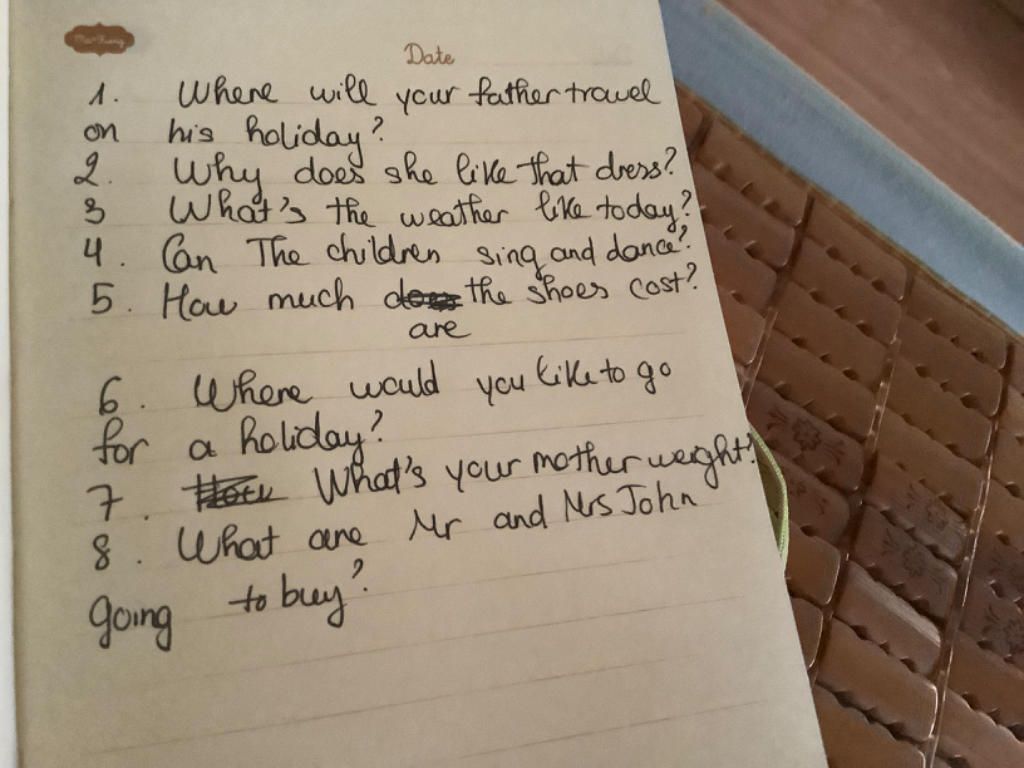 Date
1. Where will your father travel
on his holiday?
2. Why does she like that dress?
3 What's the weather like today?
4. Can The children sing and dance?
5. How much does the shoes cost?
are
6. Where would you like to go
for a holiday?
7. How What's your mother weight?
8. What are Mr and Mrs John
going to buy?